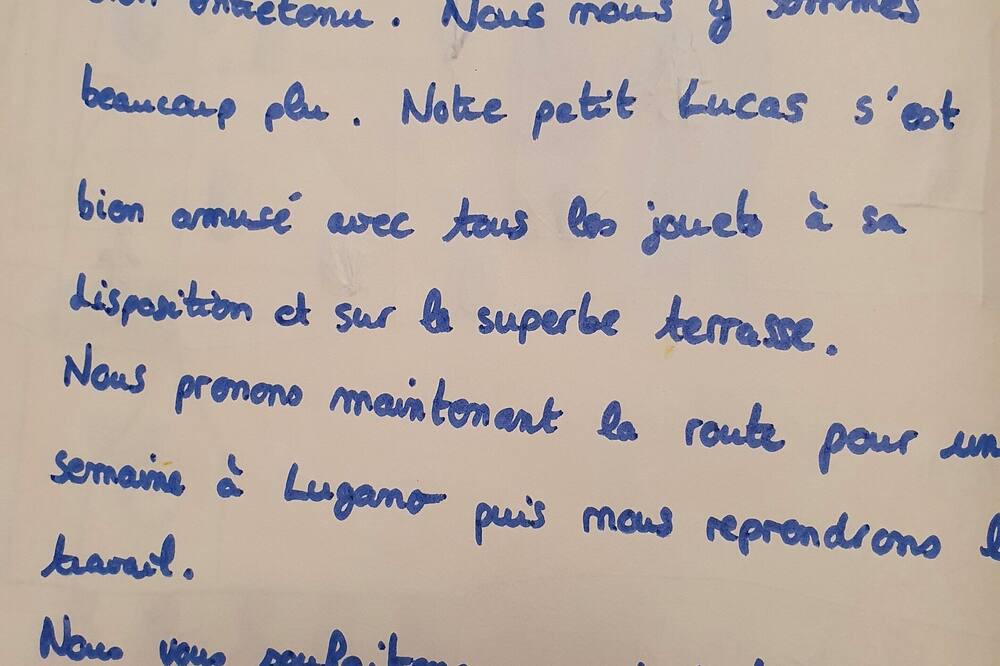 bien entretenu. Nous nous y sommes
beaucoup plu. Notre petit Lucas s'est
bien amusé avec tous les jouets à sa
disposition et sur la superbe terrasse.
Nous prenons maintenant la route pour un
semaine à Lugano puis nous reprendrons l
travail.
Nous vous souhaitons